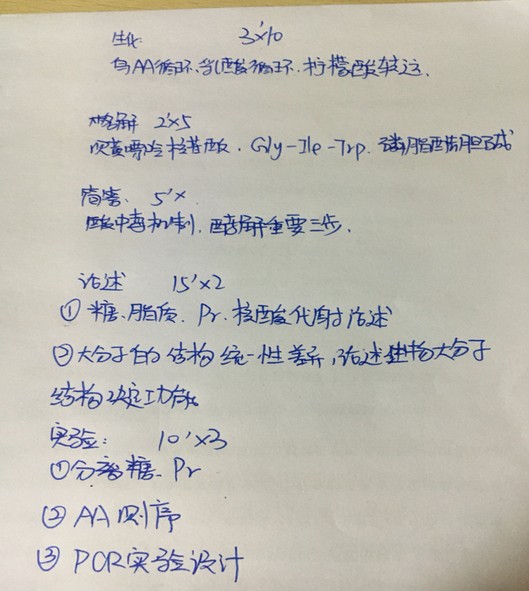 生化 3'×10
鸟AA循环、乳酸循环、柠檬酸转运、
图解 2'×5
次黄嘌呤核苷酸、Gly-Ile-Trp、磷脂酰胆碱
简答、5'×
酸中毒机制、酵解重要三步、
论述 15'×2
① 糖、脂质、Pr、核酸代谢论述
②大分子的结构统一性差异,论述生物大分子
结构决定功能
实验: 10'×3
①分离糖、Pr
② AA测序
③ PCR实验设计